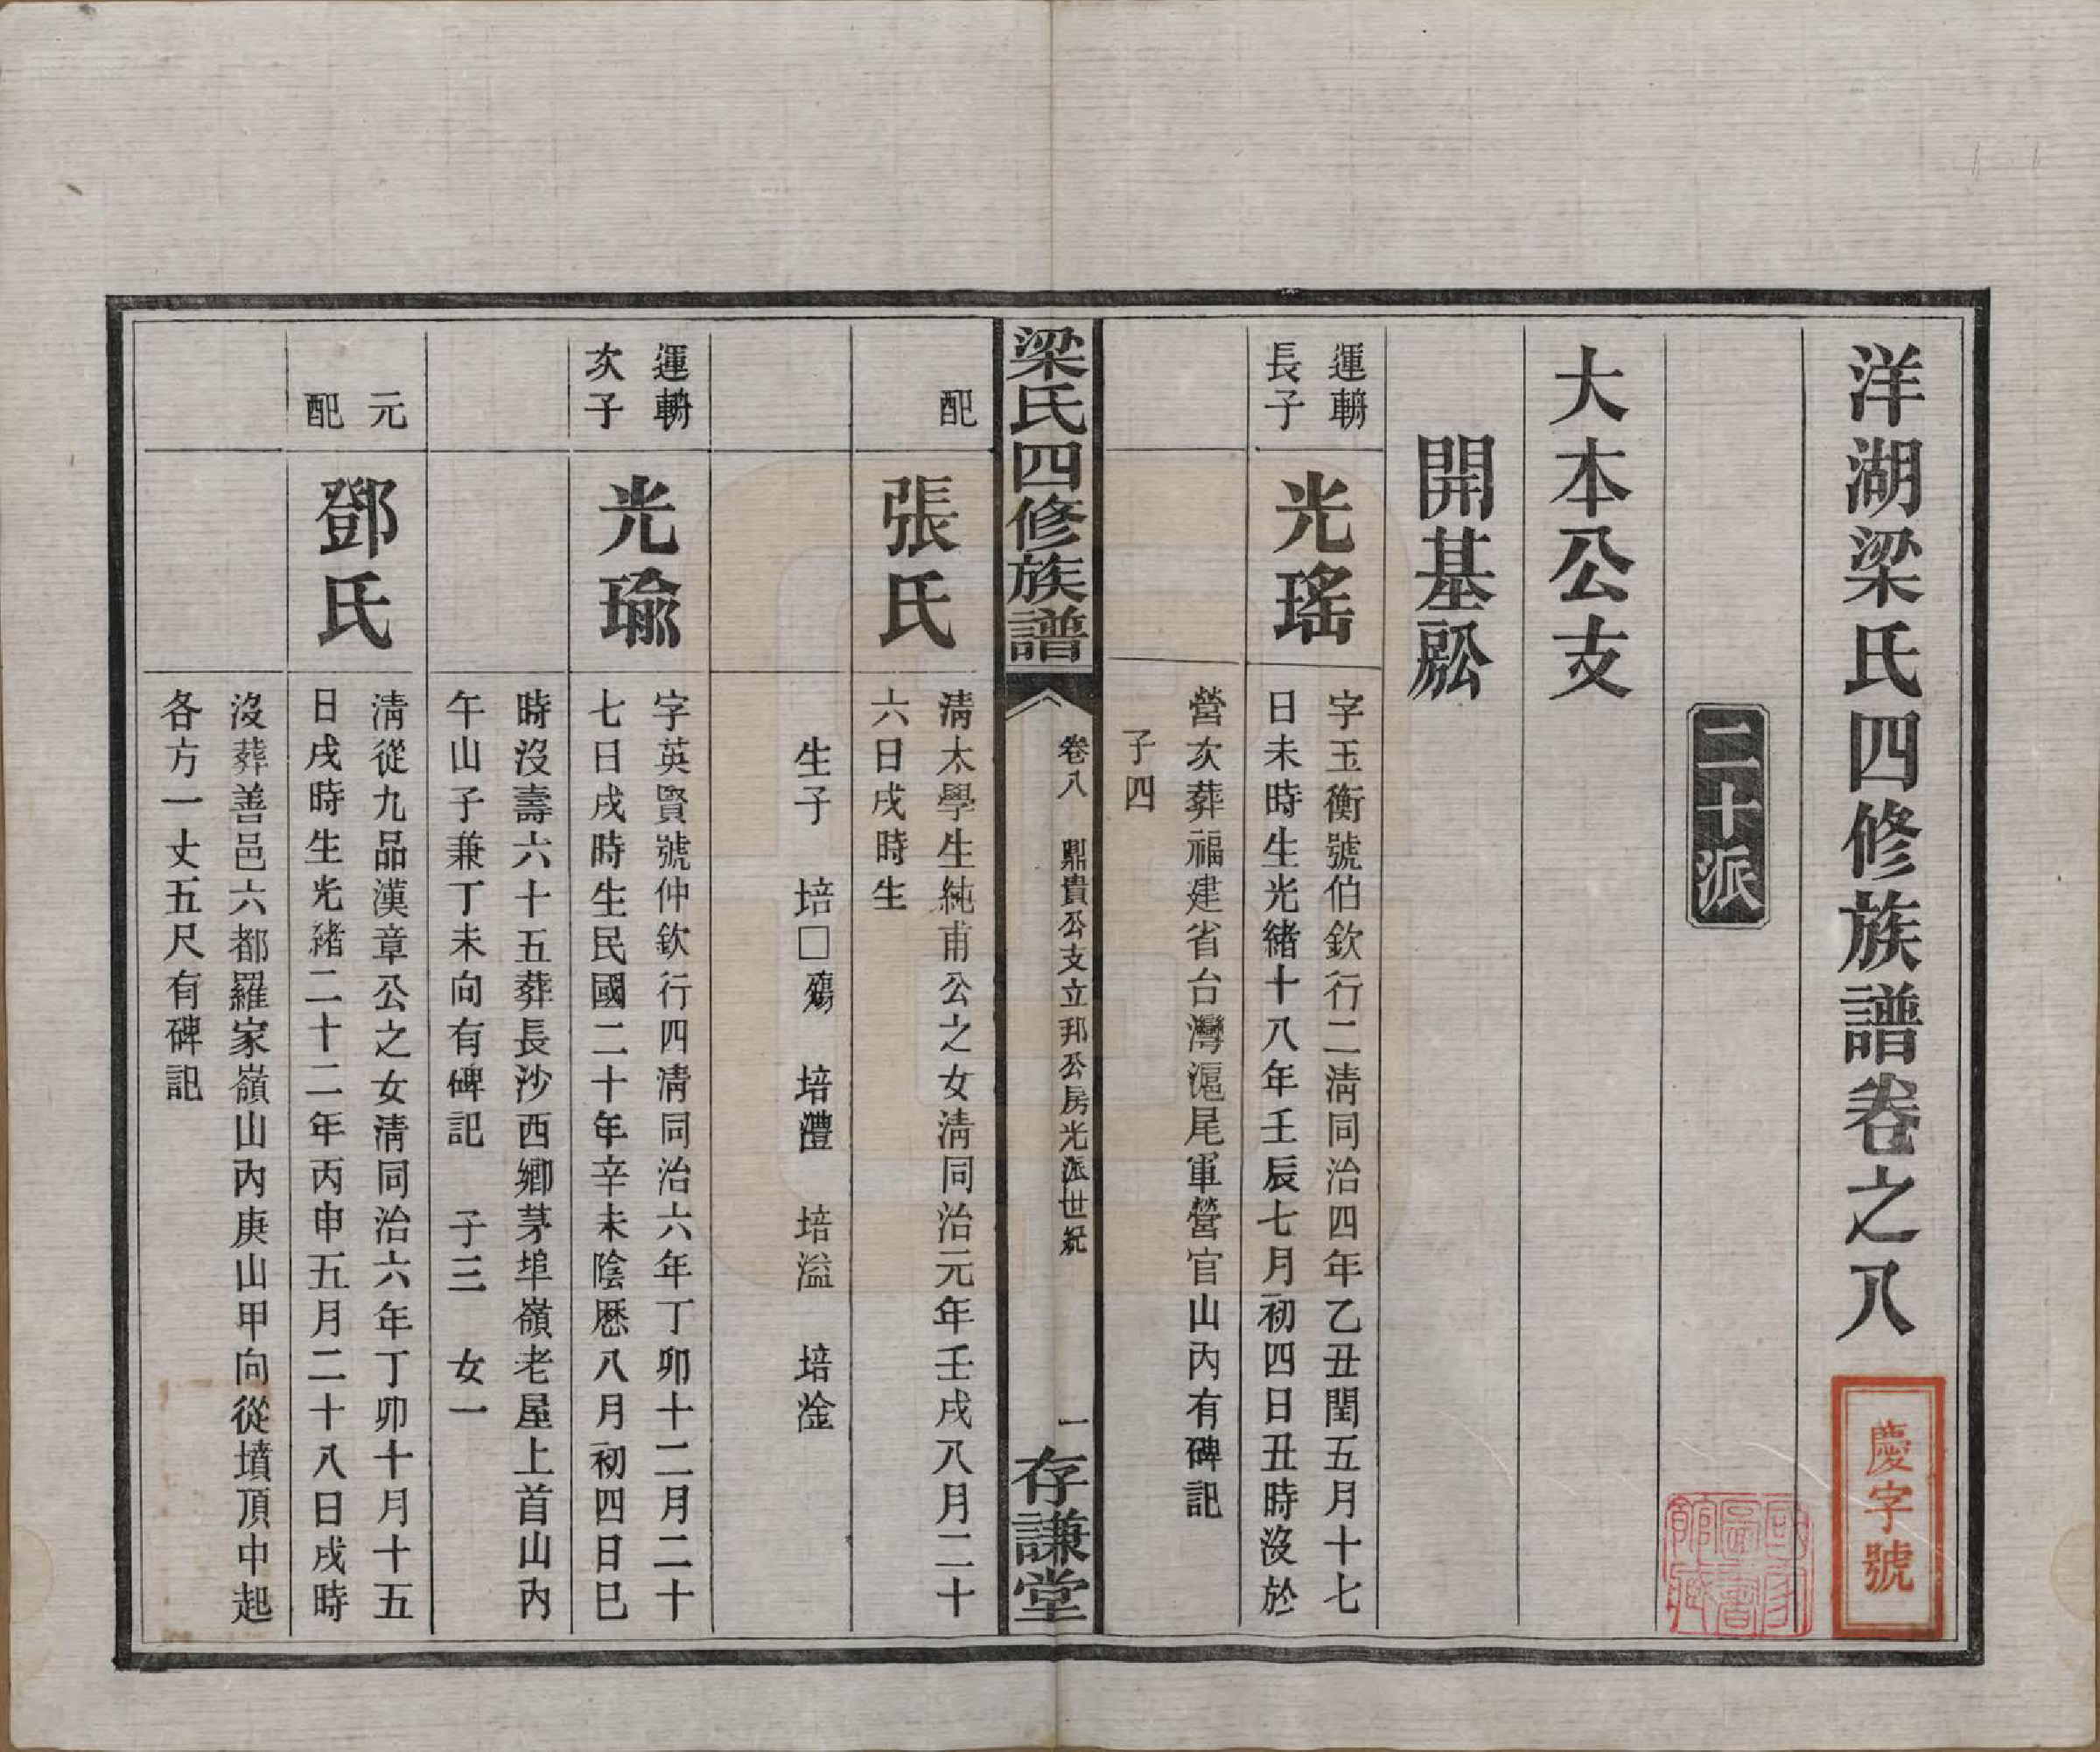 洋湖梁氏四修族譜卷之八
慶字號
二十派
國家圖書館藏
大本公支
開基
運
長子
光瑤
字玉衡號伯欽行二清同治四年乙丑閏五月十七
日未時生光緒十八年壬辰七月初四日丑時沒於
營次葬福建省台灣滬尾軍營官山內有碑記
子四
梁氏四修族譜
卷八 鼎貴公支立邦公房光派世紀
一
存謙堂
配
張氏
清太學生純甫公之女清同治元年壬戌八月二十
六日戌時生
生子 培□殤 培灃 培溢 培淦
運
次子
光瑜
字英賢號仲欽行四清同治六年丁卯十二月二十
七日戌時生民國二十年辛未陰歷八月初四日巳
時沒壽六十五葬長沙西鄉茅埠嶺老屋上首山內
午山子兼丁未向有碑記 子三 女一
元
配
鄧氏
清從九品漢章公之女清同治六年丁卯十月十五
日戌時生光緒二十二年丙申五月二十八日戌時
沒葬善邑六都羅家嶺山內庚山甲向從墳頂中起
各方一丈五尺有碑記